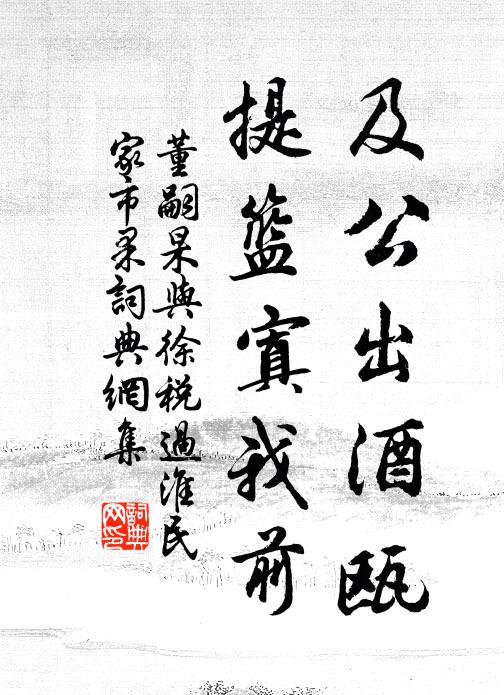 及公出酒甌
提籃寘我前
董嗣杲與徐稅過淮民
家市果詞典網集
詞典網印